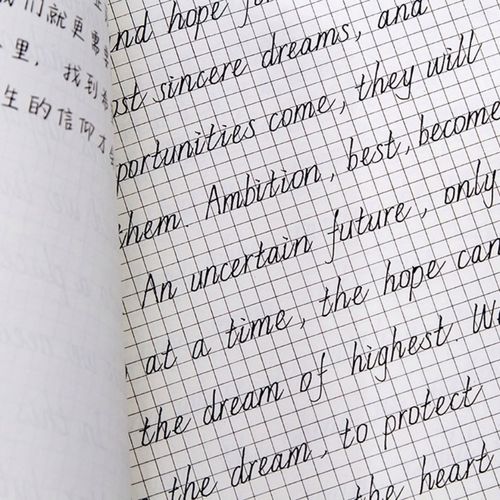 们就更需
里，找到希
生的信仰才
and hope
sincere dreams, and
portunities come, they will
them. Ambition, best, become
An uncertain future, only
at a time, the hope can
the dream of highest. W
the dream, to protect
the heart